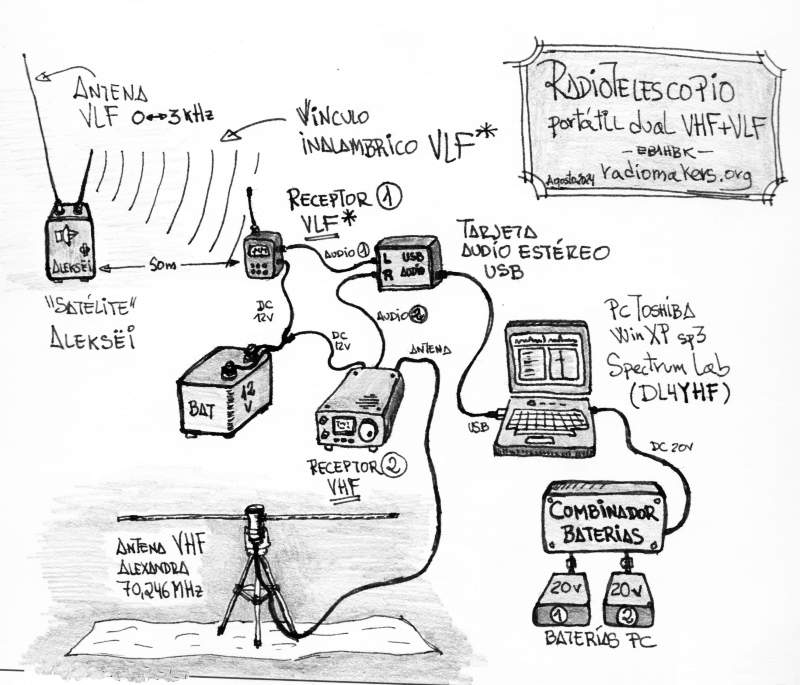 RADIOTELESCOPIO
portátil dual VHF+VLF
— EB1HBK —
Agosto2024 radiomakers.org
ANTENA
VLF 0↔3 kHz
VINCULO
INALAMBRICO VLF*
RECEPTOR 1
VLF*
ALEKSËI
50m
"SATÉLITE"
ALEKSËI
AUDIO 1
L USB
R AUDIO
TARJETA
AUDIO ESTÉREO
USB
DC
12V
AUDIO 2
DC
12V
ANTENA
BAT
12
V
RECEPTOR 2
VHF
PC TOSHIBA
WIN XP sp3
Spectrum Lab
(DL4YHF)
USB
DC 20V
COMBINADOR
BATERIAS
20V
1
20V
2
BATERÍAS PC
ANTENA VHF
ALEXANDRA
70,246 MHz